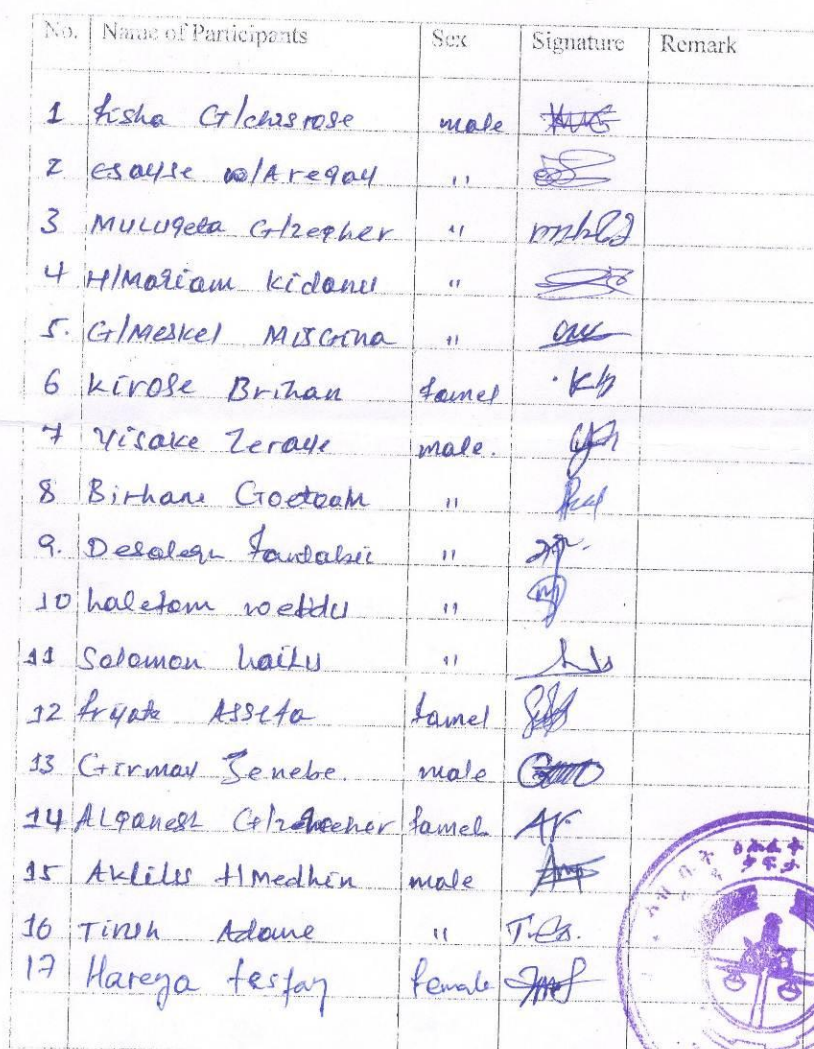 No. Name of Participants Sex Signature Remark
1 fisha G/chrsrose male
2 esayse w/Aregay "
3 Mulugeta G/zegher "
4 H/Mariam Kidanu "
5. G/Meskel Misgina "
6 kirose Brihan famel Kb
7 Yisake Zeraye male.
8 Birhane Goetoam "
9. Desalegn "
10 haletom "
11 Solomon hailu "
12 Asseta famel
13 Girmay Zenebe. male
14 Alganesh famel Ar.
15 Aklilu H/Medhin male
16 Tirsh Adame "
17 Hareya tesfay female